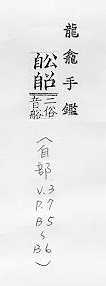 龍龕手鑑
二俗
音船
（自部 V.3 P.7 B5 ~ B6）